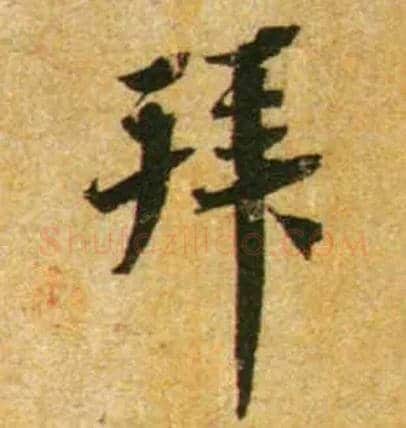 拜
Shufaziliao.COM